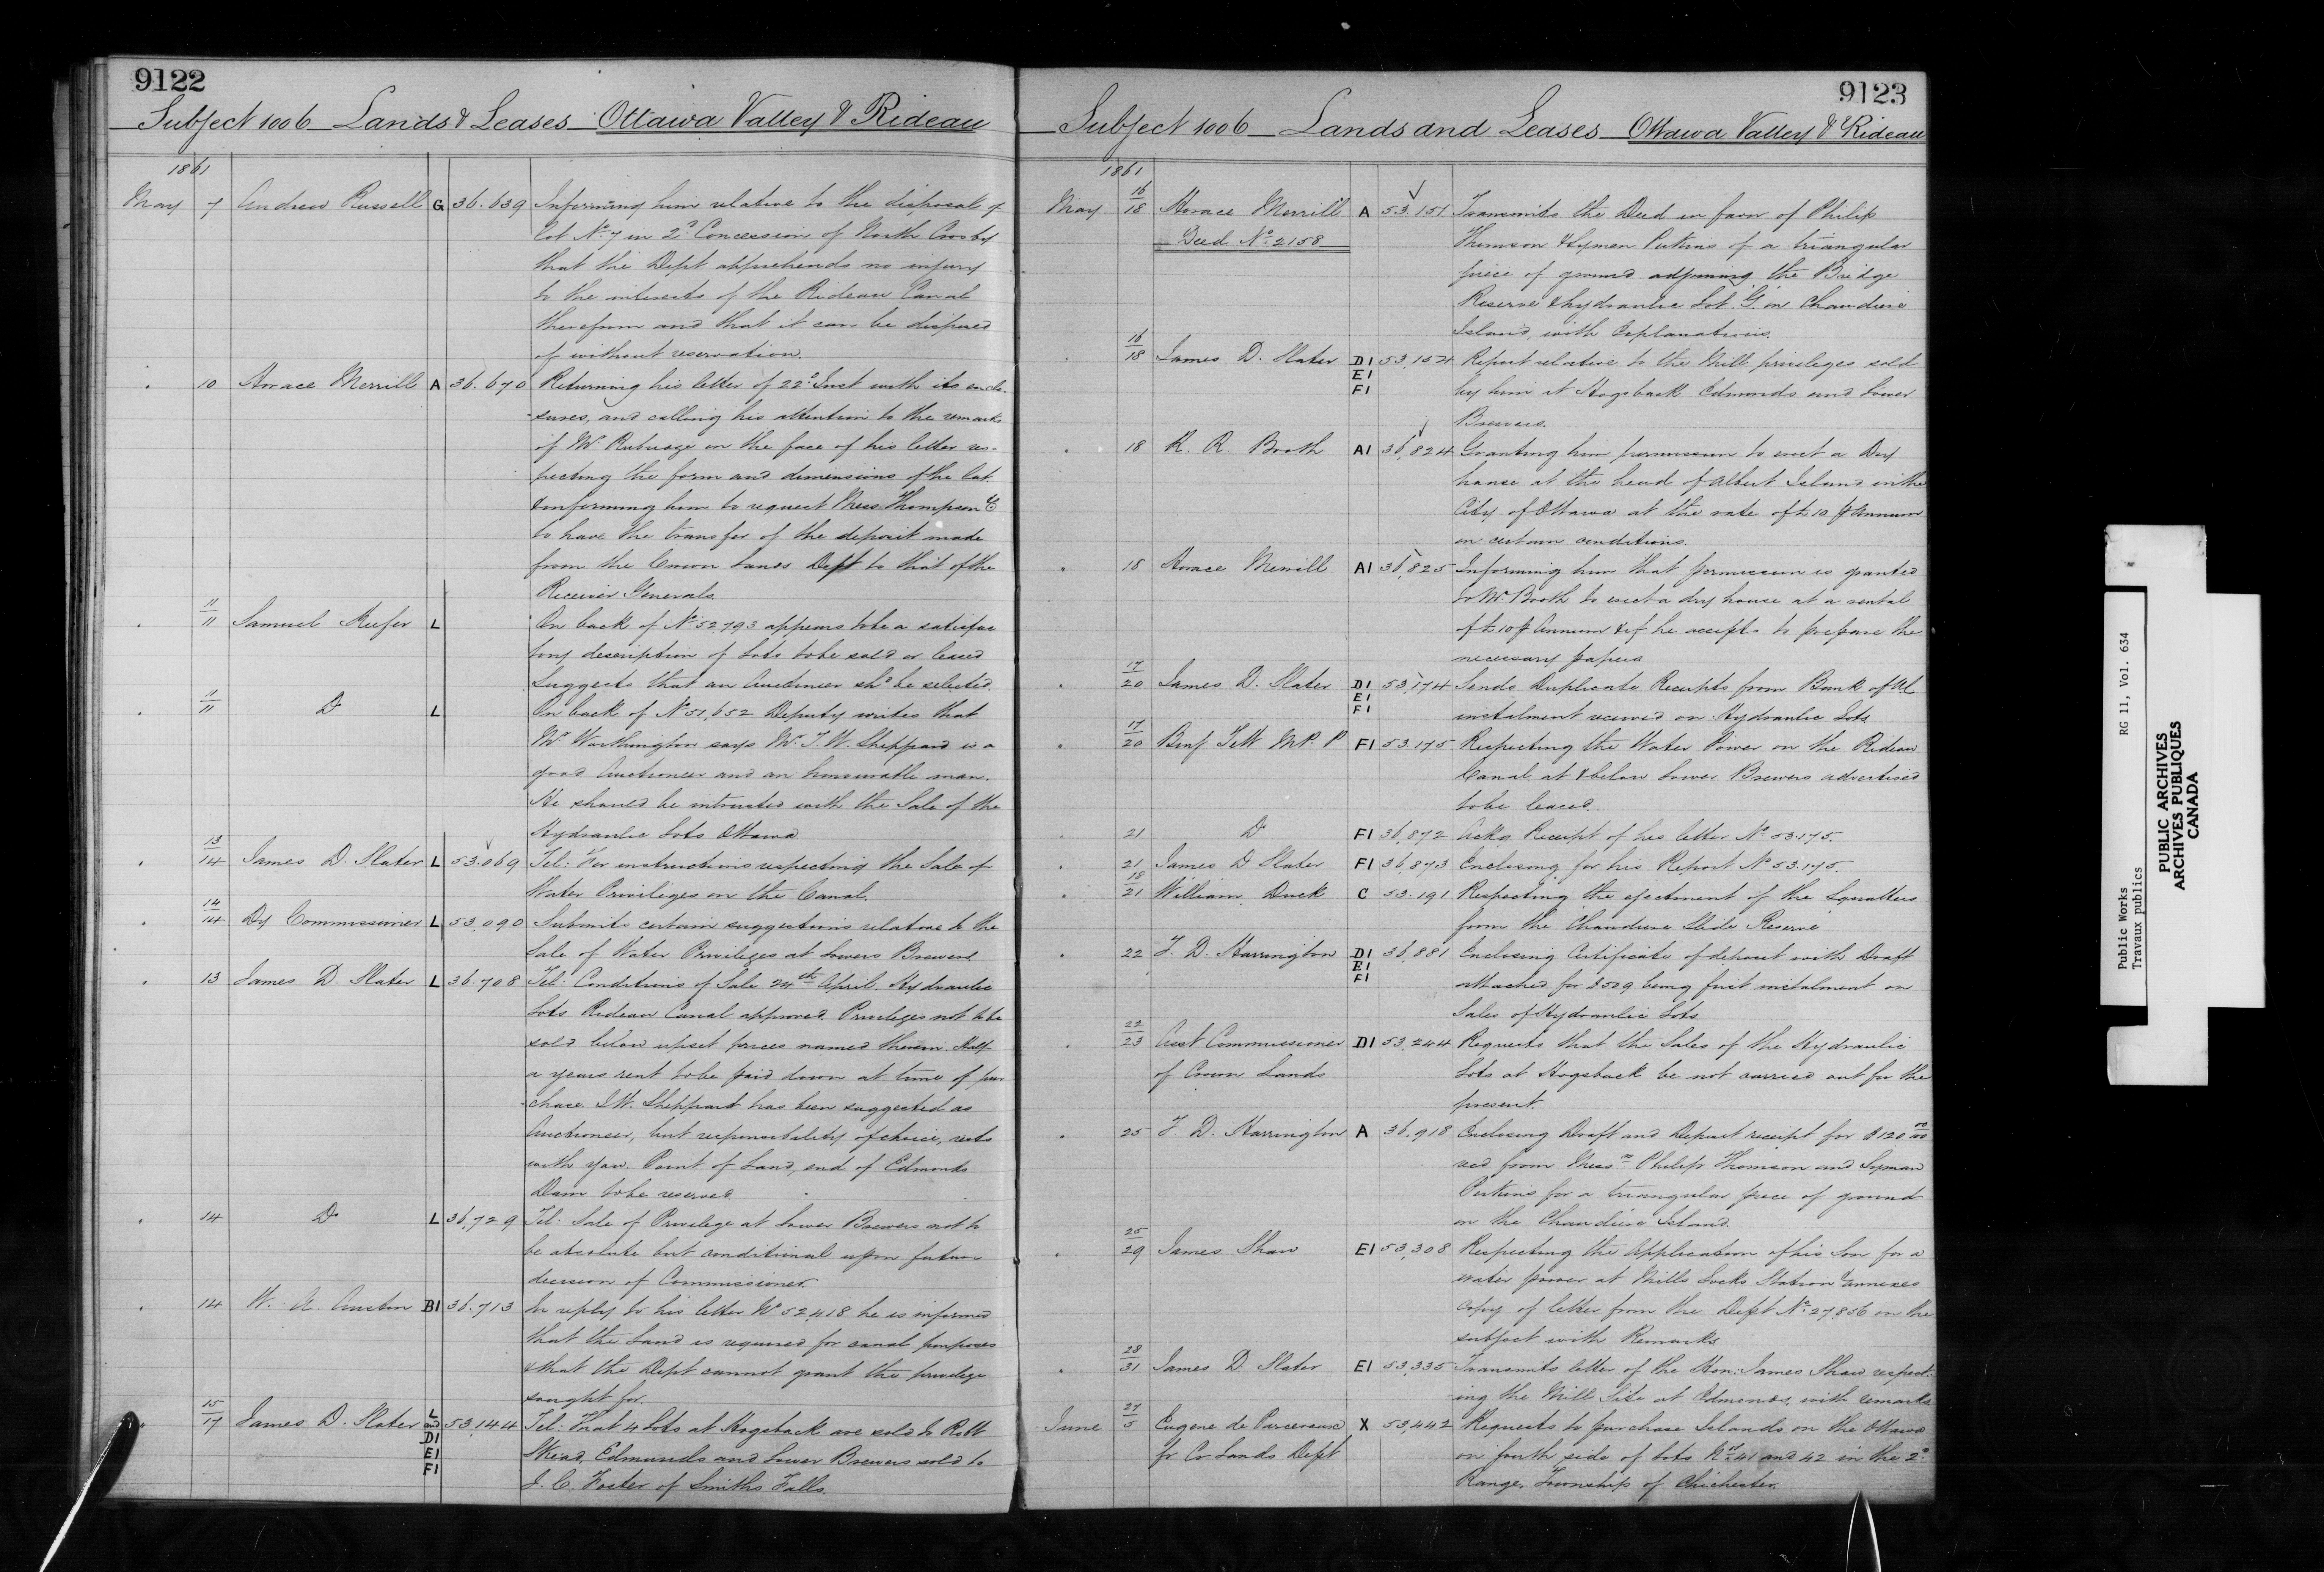 9122
Subject 1006 Lands & Leases Ottawa Valley & Rideau
1861
May 7 Andrew Russell G 36.639 Informing him relative to the disposal of
Lot No 7 in 2d Concession of North Crosby
that the Dept apprehends no injury
to the interests of the Rideau Canal
therefrom and that it can be disposed
of without reservation.
" 10 Horace Merrill A 36.670 Returning his letter of 22d Inst with its enclo-
-sures, and calling his attention to the remarks
of Mr Rubidge on the face of his letter res-
pecting the form and dimensions of the Lot
& informing him to request Mess Thompson & Co
to have the transfer of the deposit made
from the Crown Lands Dept to that of the
Receiver Generals.
" 11/11 Samuel Keefer L On back of No 52,793 appears to be a satisfac
tory description of Lots to be sold or leased
Suggests that an Auctioneer shd be selected.
" 11/11 Do L On back of No 51,652 Deputy writes that
Mr Worthington says Mr J. W. Sheppard is a
good Auctioneer and an honourable man.
He should be intrusted with the Sale of the
Hydraulic Lots Ottawa
" 13/14 James D. Slater L 53.069 Tel: For instructions respecting the Sale of
Water Privileges on the Canal.
" 14/14 Dy Commissioner L 53,090 Submits certain suggestions relative to the
Sale of Water Privileges at Lowers Brewers
" 13 James D. Slater L 36.708 Tel: Conditions of Sale 24th April Hydraulic
Lots Rideau Canal approved. Privileges not to be
sold below upset prices named therein. Half
a years rent to be paid down at time of pur
-chace. J.W. Sheppard has been suggested as
Auctioneer, but responsibility of choice, rests
with you. Point of Land, end of Edmonds
Dam to be reserved.
" 14 Do L 36,729 Tel: Sale of Privilege at Lower Brewers not to
be absolute but conditional upon future
decision of Commissioner.
" 14 W. A. Austin B1 36.713 In reply to his letter No 52,418 he is informed
that the Land is required for canal purposes
& that the Dept cannot grant the privilege
sought for.
" 15/17 James D. Slater L and D1 E1 F1 53,144 Tel: That 4 Lots at Hogsback are sold to Robt
Skead, Edmunds and Lower Brewers sold to
J. C. Foster of Smiths Falls.
9123
Subject 1006 Lands and Leases Ottawa Valley & Rideau
1861
May 16/18 Horace Merrill A 53,151 Transmits the Deed in favor of Philip
Deed No 2158 Thomson & Lyman Perkins of a triangular
piece of ground adjoining the Bridge
Reserve & hydraulic Lot "G" on Chaudiere
Island, with Explanations.
" 16/18 James D. Slater D1 E1 F1 53,154 Report relative to the Mill privileges sold
by him at Hogsback Edmonds and Lower
Brewers.
" 18 R. R. Booth A1 36,824 Granting him permission to erect a Dry
house at the head of Albert Island in the
City of Ottawa at the rate of £10 p Annum
on certain conditions.
" 18 Horace Merrill A1 36,825 Informing him that permission is granted
to Mr Booth to erect a dry house at a rental
of £10 p Annum & if he accepts to prepare the
necessary papers
" 17/20 James D. Slater D1 E1 F1 53,174 Sends Duplicate Receipts from Bank of
instalment received on Hydraulic Lots
" 17/20 Benj Tett M.P.P F1 53.175 Respecting the Water Power on the Rideau
Canal at & below Lower Brewers advertised
to be leased.
" 21 Do F1 36,872 Ackg Receipt of his letter No 53.175.
" 21 James D Slater F1 36,873 Enclosing for his Report No 53.175.
" 18/21 William Duck C 53.191 Respecting the ejectment of the Squatters
from the Chaudiere Slide Reserve
" 22 T. D. Harrington D1 E1 F1 36,881 Enclosing Certificate of deposit with Draft
attached for $509 being first instalment on
Sales of Hydraulic Lots.
" 22/23 Asst Commissioner D1 53,244 Requests that the Sales of the Hydraulic
of Crown Lands Lots at Hogsback be not carried out for the
present.
" 25 T. D. Harrington A 36,918 Enclosing Draft and Deposit receipt for $120 00/00
recd from Messrs Philip Thomson and Lyman
Perkins for a triangular piece of ground
on the Chaudiere Island.
" 25/29 James Shaw E1 53,308 Respecting the Application of his Son for a
water power at Mills Locks Station & annexes
copy of letter from the Dept No 27,856 on the
subject with Remarks
" 28/31 James D. Slater E1 53,335 Transmits letter of the Hon: James Shaw respect-
-ing the Mill Site at Edmonds, with remarks
June 27/5 Eugene de X 53,442 Requests to purchase Islands on the Ottawa
fr Co Lands Dept on fourth side of Lots Nos 41 and 42 in the 2d
Range, Township of Chichester.
Public Works
Travaux publics
RG 11, Vol. 634
PUBLIC ARCHIVES
ARCHIVES PUBLIQUES
CANADA